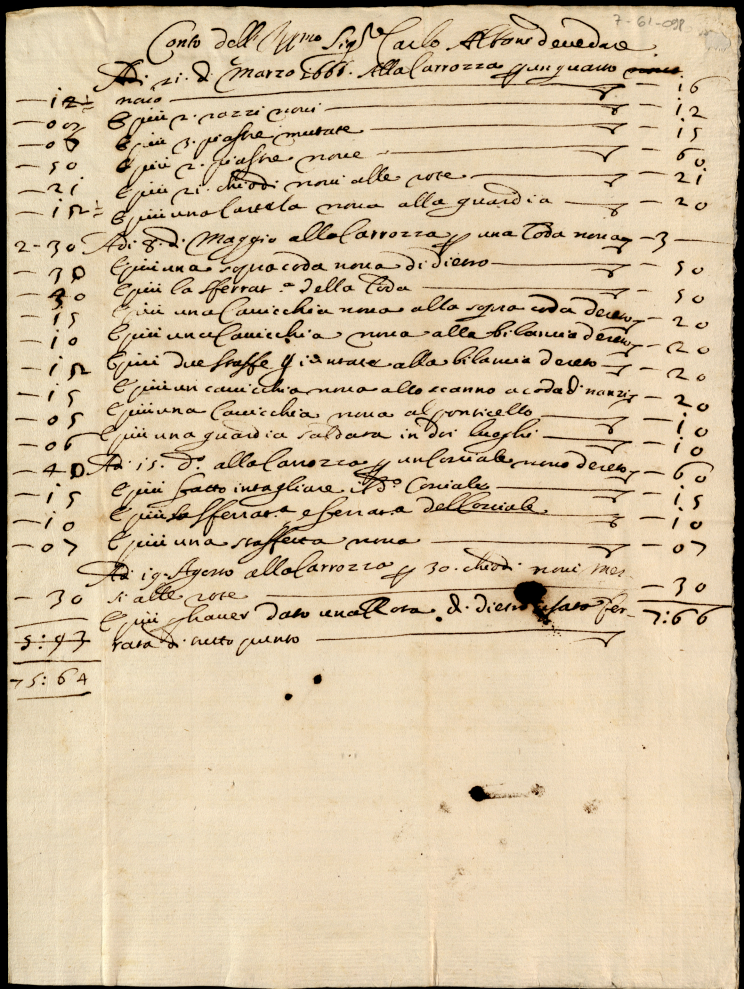 7-61-098
Conto dell' Ill.mo Sig.re Carlo
Adi 21. d. Marzo 1666. Alla Carrozza p un quarto
— 12½ novo — — 16
— 02 E più 2. razzi novi — — 12
— 06 E più 3. piastre mutate — — 15
— 50 E più 2. piastre nove — — 60
— 21 E più 21. chiodi novi alle rote — — 21
— 15½ E più una Cartela nova alla guardia — — 20
2-30 Adi 8. d. Maggio alla Carrozza p una Coda nova — 3 —
— 30 E più una sopra coda nova di dietro — — 50
— 30 E più la sferrat.a della Coda — — 50
— 15 E più una Cavicchia nova alla sopra coda dereto — 20
— 10 E più una Cavicchia nova alla bilancia dereto — 20
— 15 E più due staffe alla bilancia dereto — 20
— 15 E più un cavicchia nova allo scanno a coda d. nanzi — 20
— 05 E più una Cavicchia nova al ponticello — — 10
— 06 E più una guardia saldata in doi luoghi — — 10
— 40 Adi 15. d.o alla Carrozza p un Corciale novo dereto — 60
— 15 E più fatto intagliare il d.o Corciale — — 15
— 10 E più sferrat.a e ferrat.a del Corciale — 10
— 07 E più una staffetta nova — — 07
Adi 19. Agosto alla Carrozza p 30. chiodi novi mes-
— 30 si alle rote — — 30
E più p haver dato una Rota d. dietro usata fer- 7:66
5:93 rata di tutto punto —
75:64